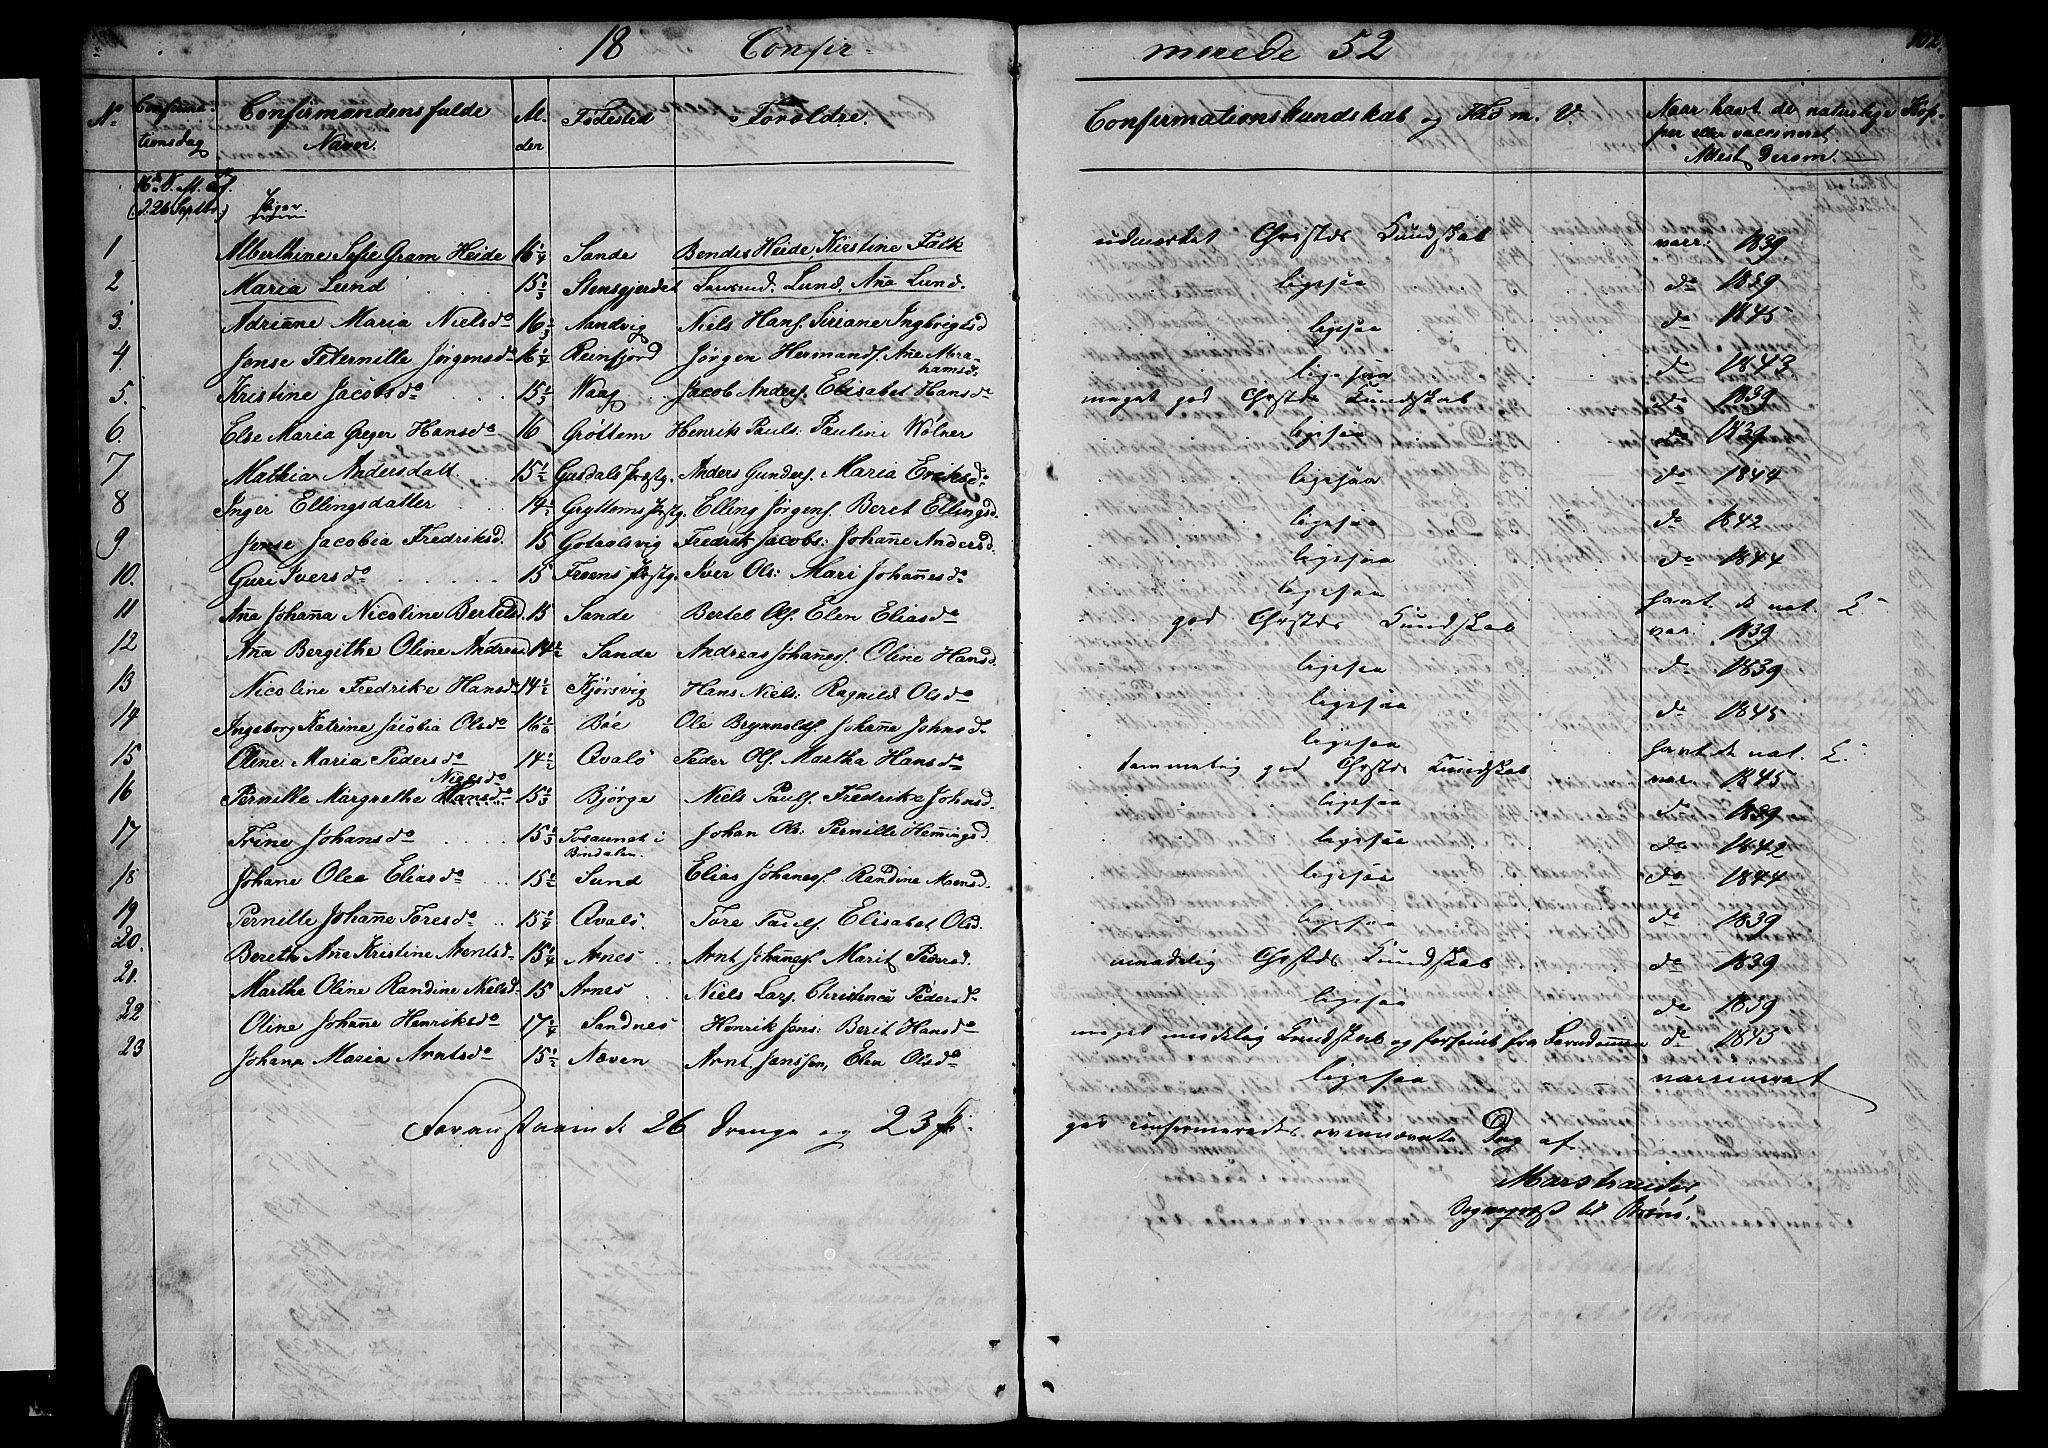 18 Confir-
merede 52
No Confirmationsdag Confirmandens fulde Navn. Alder Fødested Foroldre. Confirmationskundskab og Flid m. V. Naar havt de naturlige Kopper eller vaccineret Attest derom.
(d. 26 Septbr.) Piger
1 Alberthine Sofie Gram Heide 16 1/4 Sande Bendis Heide, Kirstine Falk udmærket Christds Kundskab vacc. 1839
2 Maria Lund 15 1/3 Stensgjerdet Laurud. Lund, Aña Lund. ligesaa do 1839
3. Adrianne Maria Nielsdr 16 Sandvig Niels Hans. Siriane Ingbrigtsd ligesaa do 1845
4. Jonse Peternille Jørgensdr 16 1/4 Reinfjord Jørgen Hermands. Añe Abrahamsd. ligesaa do 1843
5. Kristine Jacobsdr 15 1/3 Waag Jacob Anders. Elisabet Hansdr meget god Chrstds Kundskab do 1839
6. Else Maria Greger Hansdr 16 Grøttem Henrik Pauls: Paulini Wolner ligesaa do 1839
7 Mathia Andersdatt. 15 1/2 Gusdals Prstg. Anders Gunders. Maria Eriksdr ligesaa do 1844
8 Inger Ellingsdatter 14 1/2 Gryttems Prstg. Elling Jørgens. Beret Ellingsd. ligesaa do 1842
9 Jonse Jacobia Fredriksd. 15 Gotaalsvig Fredrik Jacobs: Johañe Andersd. ligesaa do 1844
10. Guri Iversdr 15 Froens Prstg. Iver Ols: Mari Johañesdr ligesaa havt de nat. K.
11 Aña Johaña Nicoline Bertelsd. 15 Sande Bertel Ols. Elen Eliasdr god Chrstds Kundskab vac: 1839
12 Aña Bergithe Oline Andreasd 14 1/2 Sande Andreas Johañes. Oline Hansd. ligesaa do 1839
13 Nicoline Fredrike Hansdr 14 1/2 Kjørsvig Hans Niels: Ragnild Olsdr ligesaa do 1845
14 Ingeborg Katrine Jacobia Olsdr 16 1/6 Bøe Ole Brynnolts. Johañe Johnsd. ligesaa havt de nat. K.
15 Oline Maria Pedersdr 14 1/2 Qvalø Peder Ols. Martha Hansdr temmelig god Chrstds Kundskab vac. 1845
16 Pernille Margrethe Nielsdr 15 1/3 Bjørge Niels Pauls. Fredrike Johnsd. ligesaa do 1839
17 Trine Johansdr 15 1/3 Tosaunet i Bindalen Johan Ols: Pernille Hemingsd. ligesaa do 1842
18 Johane Olea Eliasdr 15 1/2 Sund Elias Johanes. Randine Monsd. ligesaa do 1844
19 Pernille Johañe Toresdr 15 1/4 Qvalø. Tore Pauls. Elisabet Olsd. ligesaa do 1839
20. Bereth Aña Kristine Arntsd. 15 1/4 Arnes Arnt Johañes. Marit Pedersd. maadelig Chrstds Kundskab do 1839
21. Martha Oline Randine Nielsd. 15 Arnes Niels Lars. Christence Pedersd. ligesaa do 1839
22 Oline Johañe Henriksdr 17 1/4 Sandnes Henrik Jens: Berit Hansdr meget maadelig Kundskab og forsømt fra Barndommen do 1845
23 Johana Maria Arntsdr 15 1/2 Næven Arnt Janssen, Elen Olsdr ligesaa vaccineret
Foranstaaende 26 Drenge og 23 Pi-
ger confirmeredes ovennævnte Dag af
Marstrander
Sognepræst til Brønø.